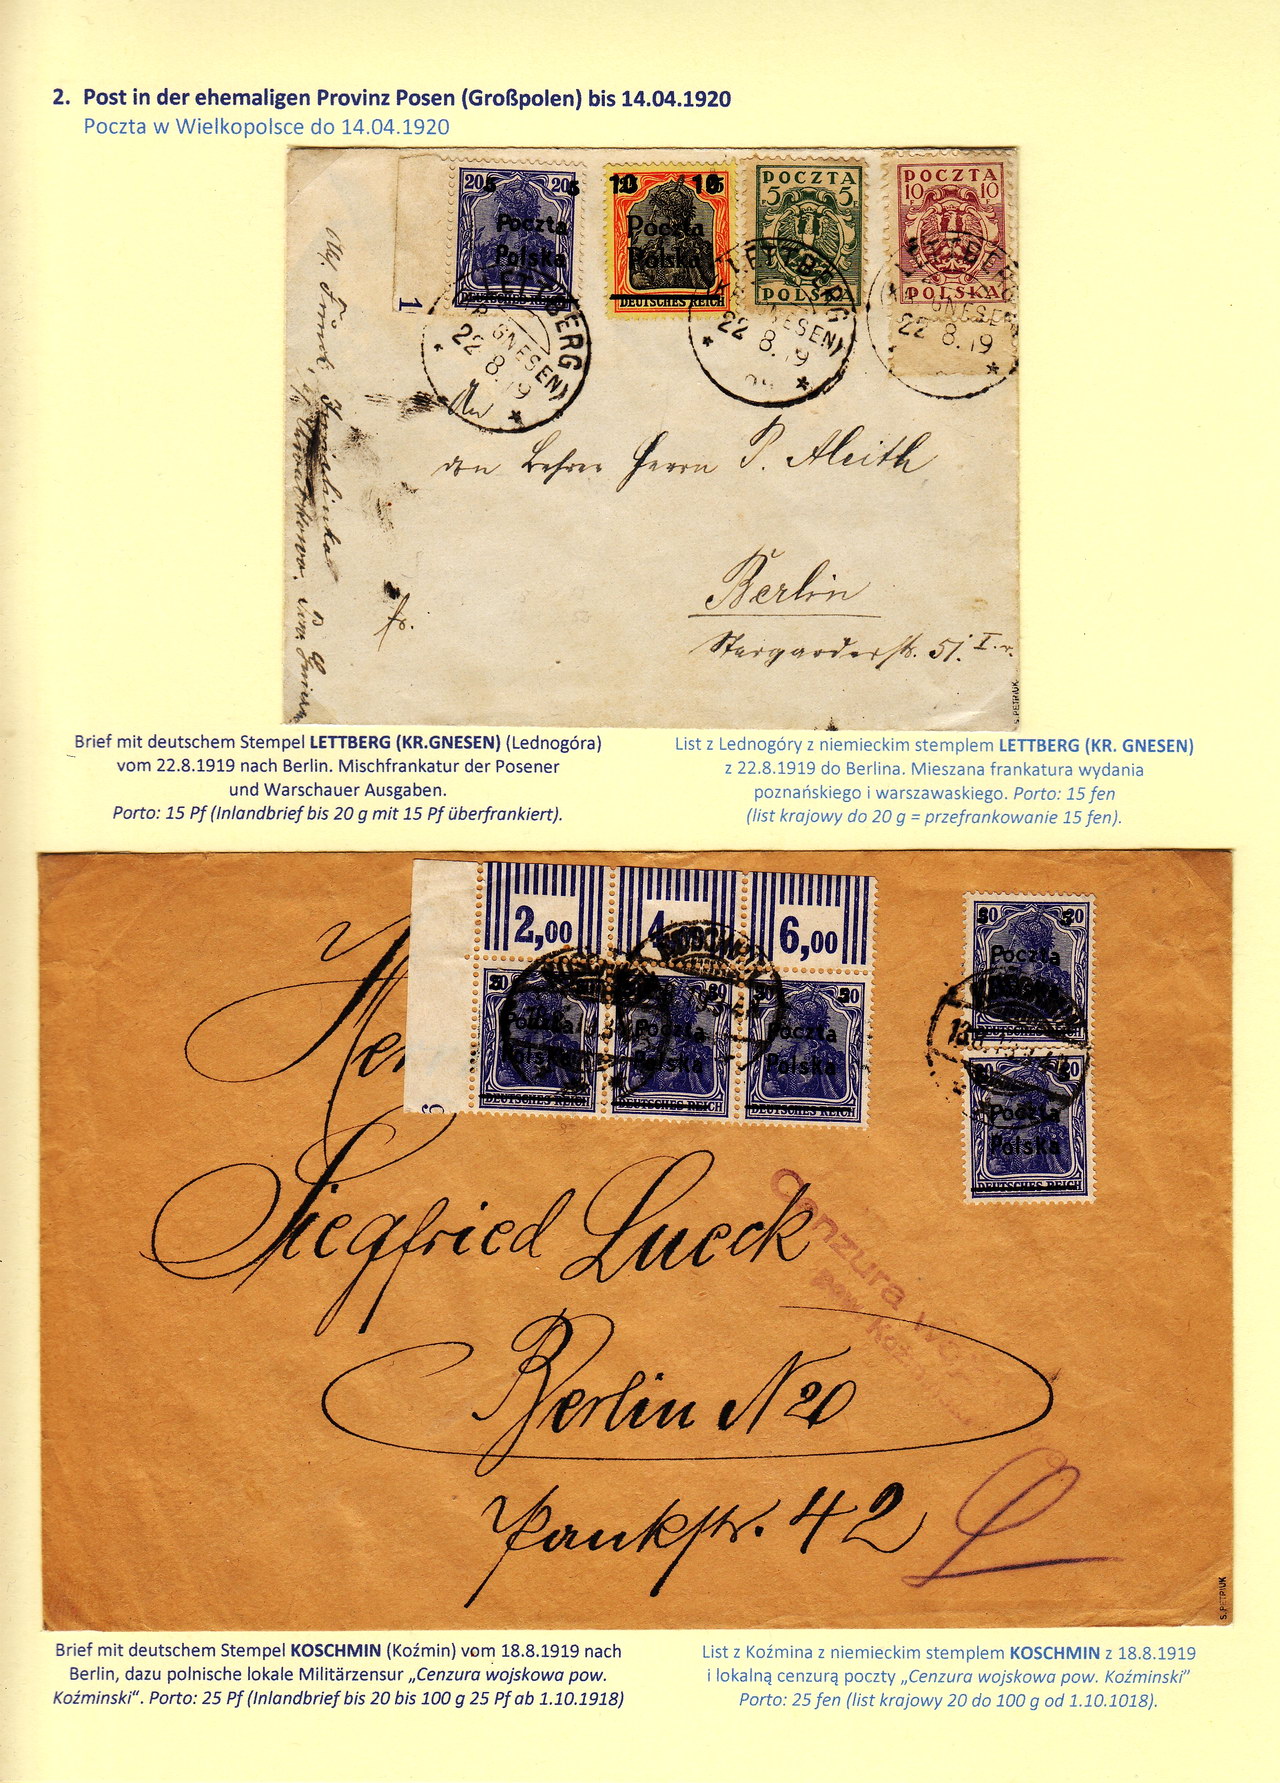 2. Post in der ehemaligen Provinz Posen (Großpolen) bis 14.04.1920
Poczta w Wielkopolsce do 14.04.1920
205 205 5
Poczta
Polska
DEUTSCHES REICH
10 10
Poczta
Polska
DEUTSCHES REICH
POCZTA
5 F 5 F
POLSKA
POCZTA
10 F 10 F
POLSKA
LETTBERG
(KR. GNESEN)
22 8.19
LETTBERG
GNESEN)
22 8.19
LETTBERG
GNESEN
22 8.19
An
den Lehrer Herrn P. Aleith
Berlin
Stargarderstr. 51. I. r.
fr.
S. PETRIUK
Brief mit deutschem Stempel LETTBERG (KR.GNESEN) (Lednogóra)
vom 22.8.1919 nach Berlin. Mischfrankatur der Posener
und Warschauer Ausgaben.
Porto: 15 Pf (Inlandbrief bis 20 g mit 15 Pf überfrankiert).
List z Lednogóry z niemieckim stemplem LETTBERG (KR. GNESEN)
z 22.8.1919 do Berlina. Mieszana frankatura wydania
poznańskiego i warszawaskiego. Porto: 15 fen
(list krajowy do 20 g = przefrankowanie 15 fen).
2,00 4 6,00
Poczta Poczta Poczta
Polska Polska Polska
DEUTSCHES REICH DEUTSCHES REICH DEUTSCHES REICH
20
Poczta
DEUTSCHES REICH
20
Poczta
Polska
DEUTSCHES REICH
Herrn
Siegfried Lueck
Cenzura
pow. Koźm
Berlin N 20
Pankstr. 42
S. PETRIUK
Brief mit deutschem Stempel KOSCHMIN (Koźmin) vom 18.8.1919 nach
Berlin, dazu polnische lokale Militärzensur „Cenzura wojskowa pow.
Koźminski“. Porto: 25 Pf (Inlandbrief bis 20 bis 100 g 25 Pf ab 1.10.1918)
List z Koźmina z niemieckim stemplem KOSCHMIN z 18.8.1919
i lokalną cenzurą poczty „Cenzura wojskowa pow. Koźminski”
Porto: 25 fen (list krajowy 20 do 100 g od 1.10.1018).